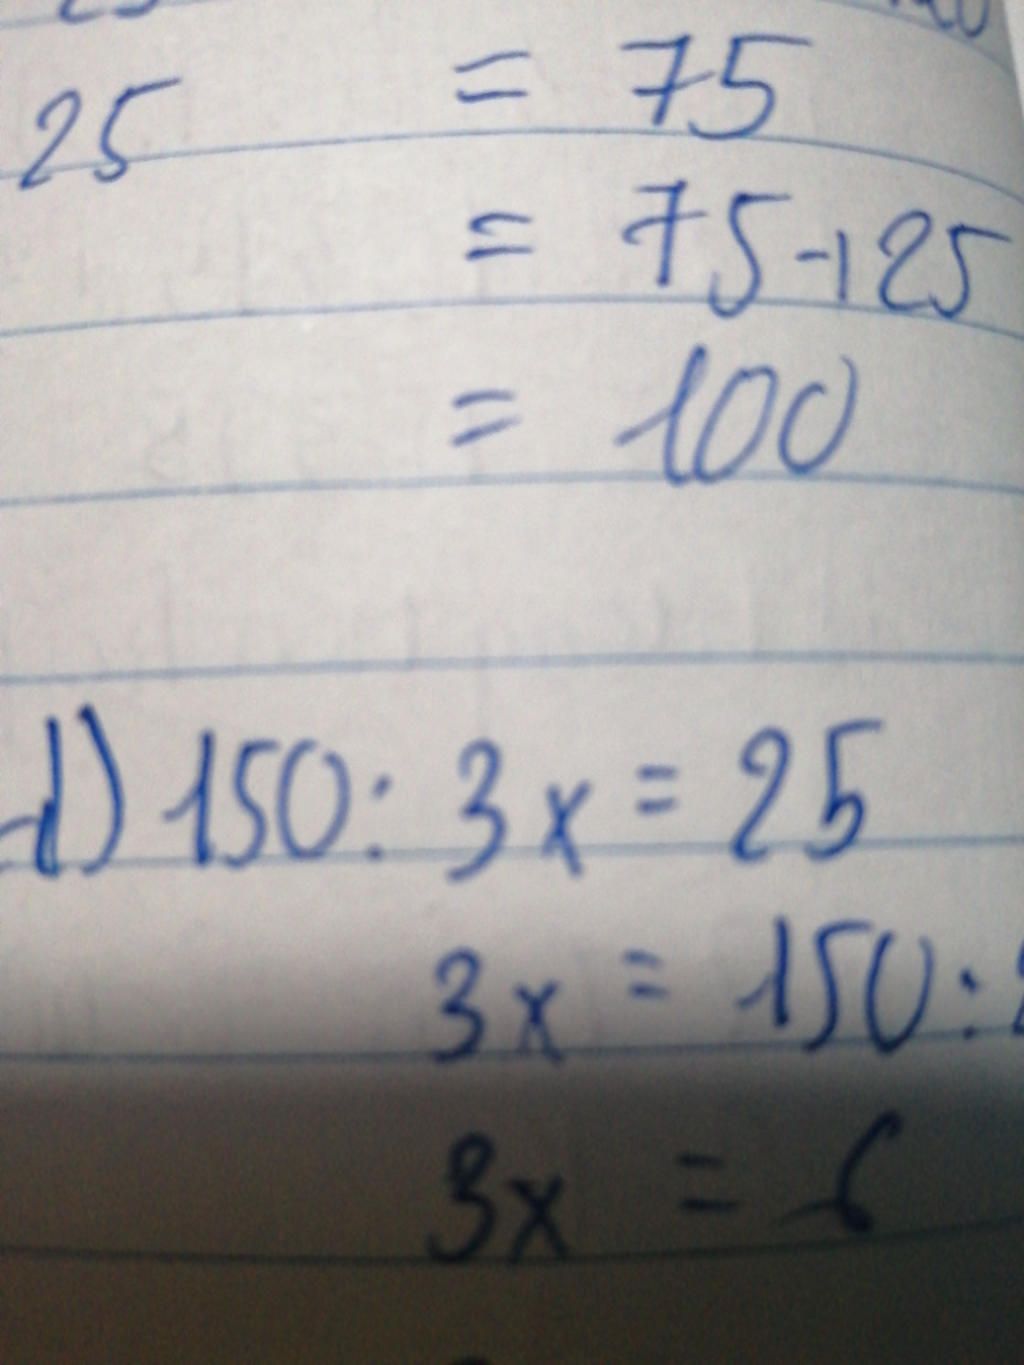 25 = 75
= 75+25
= 100
d) 150: 3x = 25
3x = 150:
3x = 6